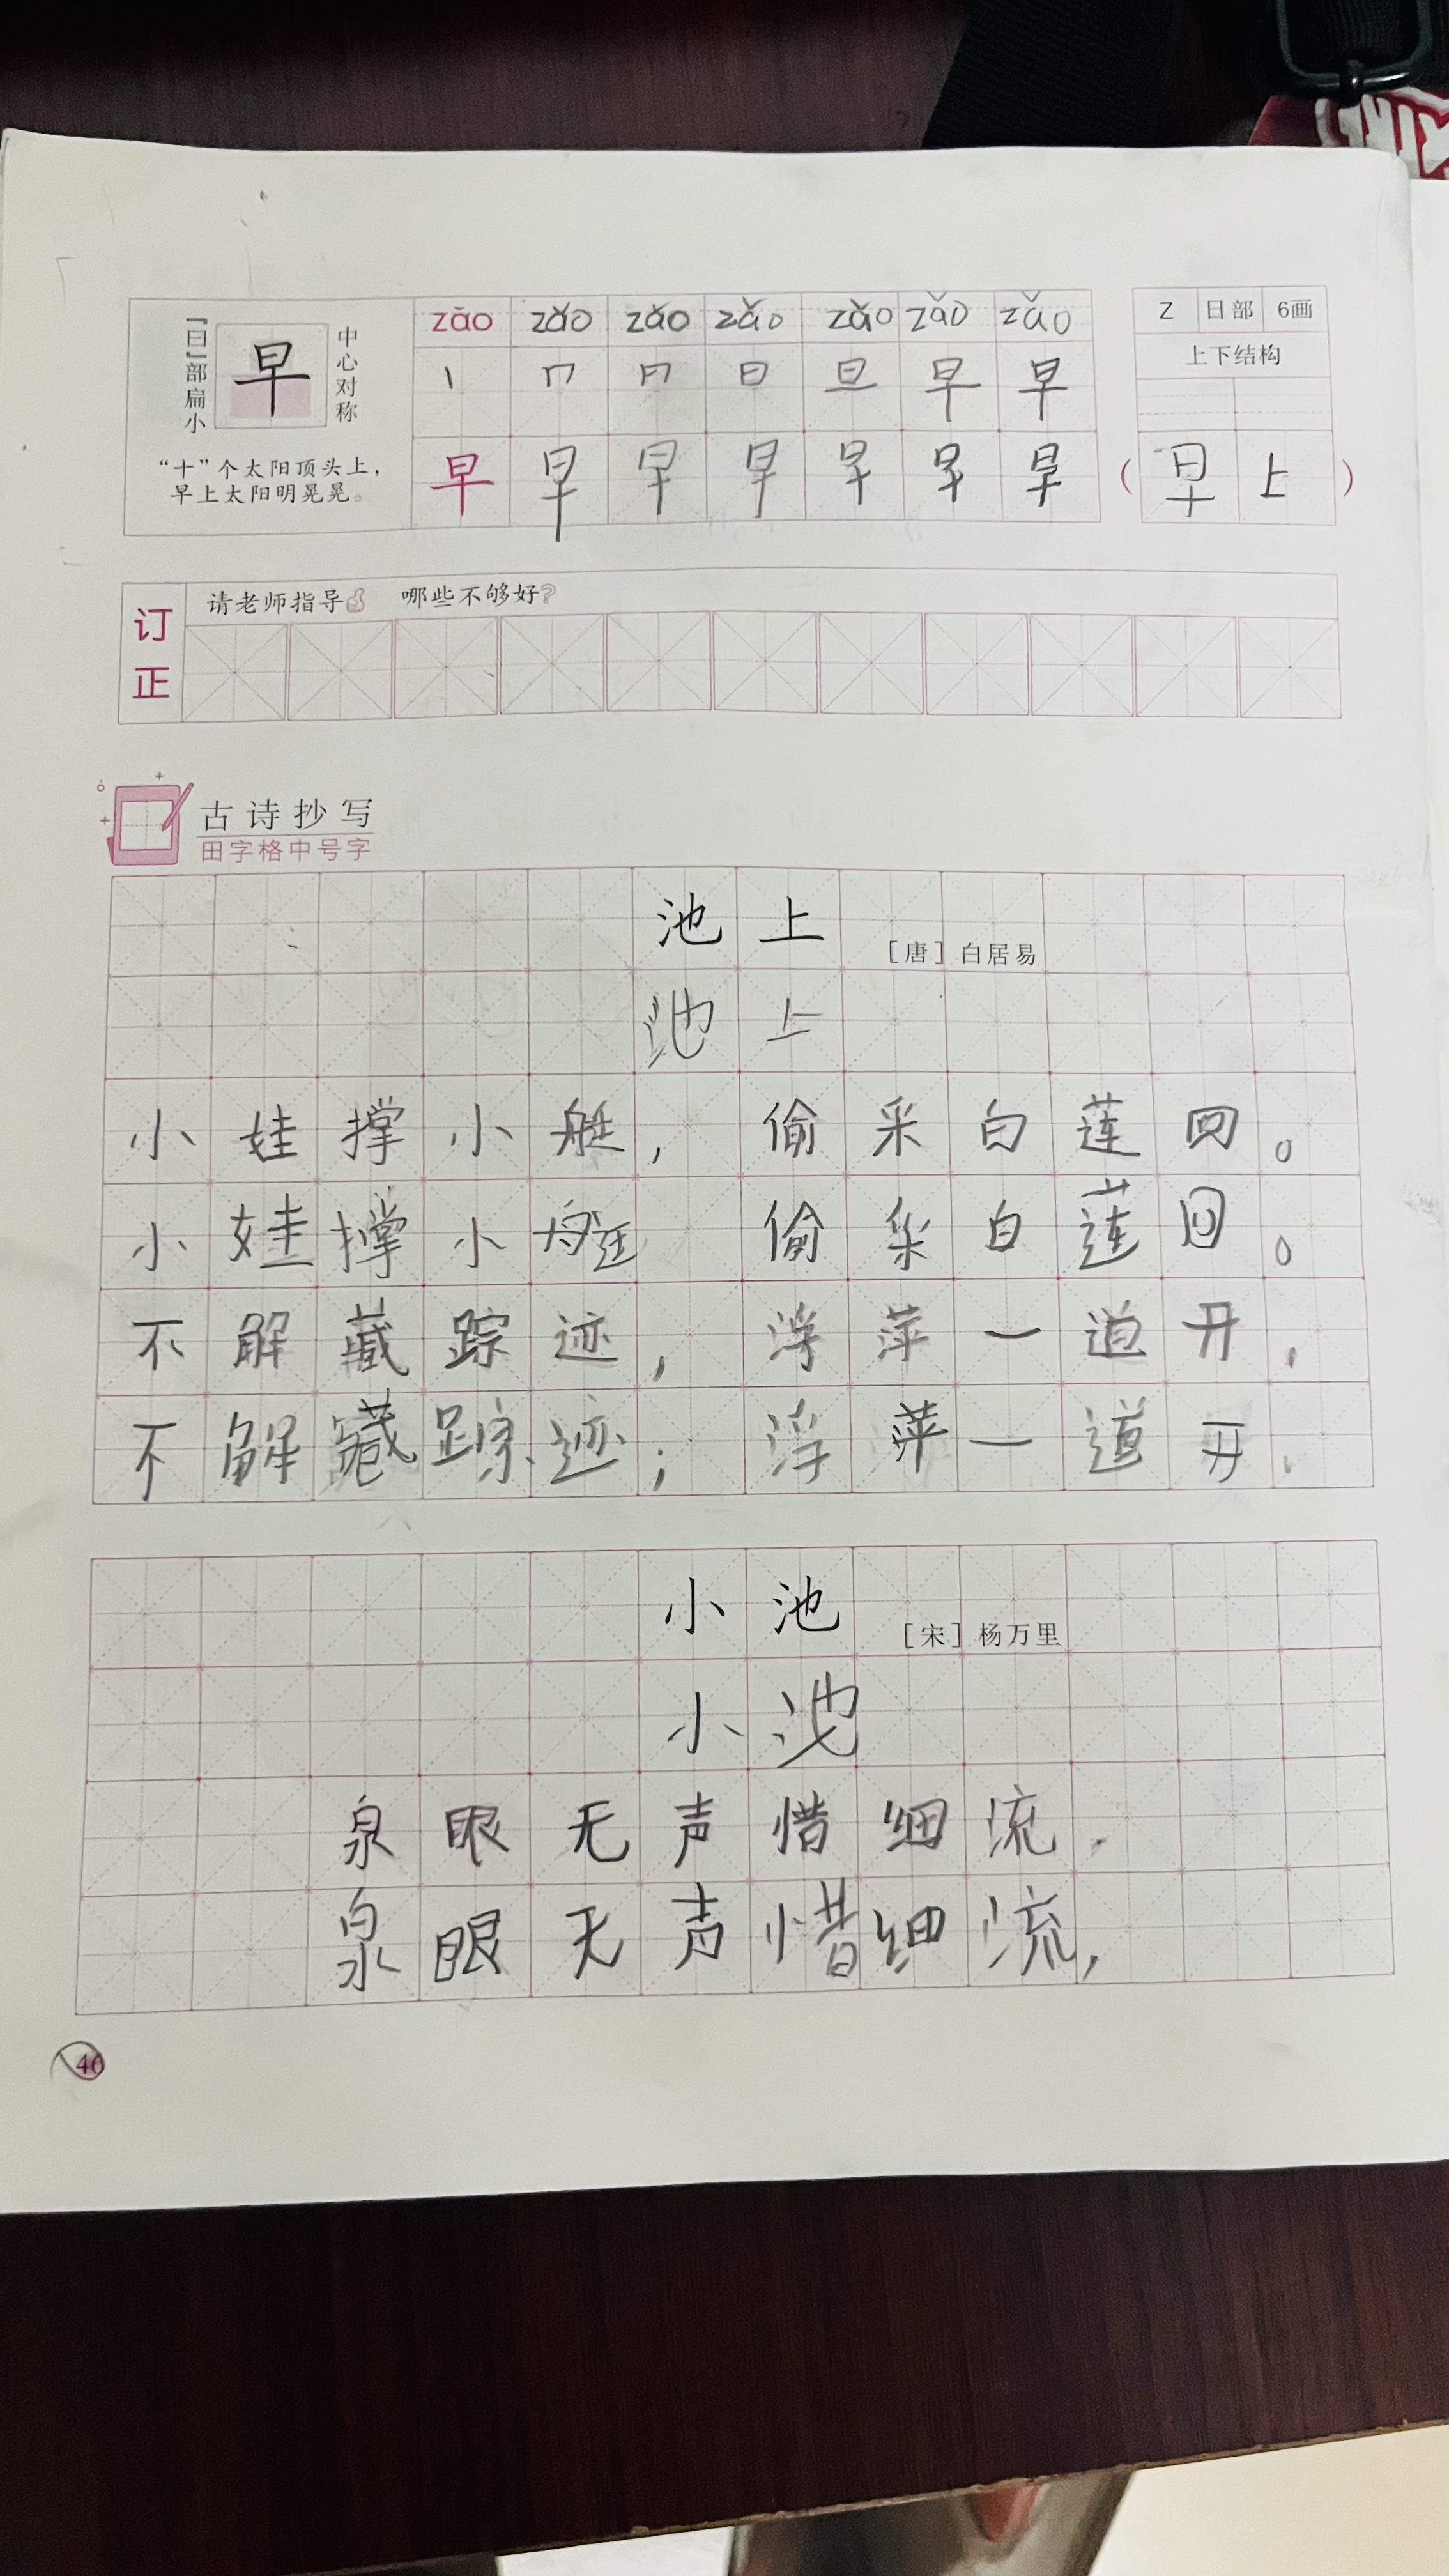 zǎo zǎo zǎo zǎo zǎo zǎo zǎo
Z 日部 6画
「曰」部扁小
早
中心对称
上下结构
“十”个太阳顶头上，
早上太阳明晃晃。
早 早 早 早 早 早 早
（早上）
订正
请老师指导 哪些不够好？
古诗抄写
田字格中号字
池上
［唐］白居易
池上
小娃撑小艇，偷采白莲回。
小娃撑小艇 偷采白莲回。
不解藏踪迹，浮萍一道开。
不解藏踪迹；浮萍一道开。
小池
［宋］杨万里
小池
泉眼无声惜细流，
泉眼无声惜细流，
46